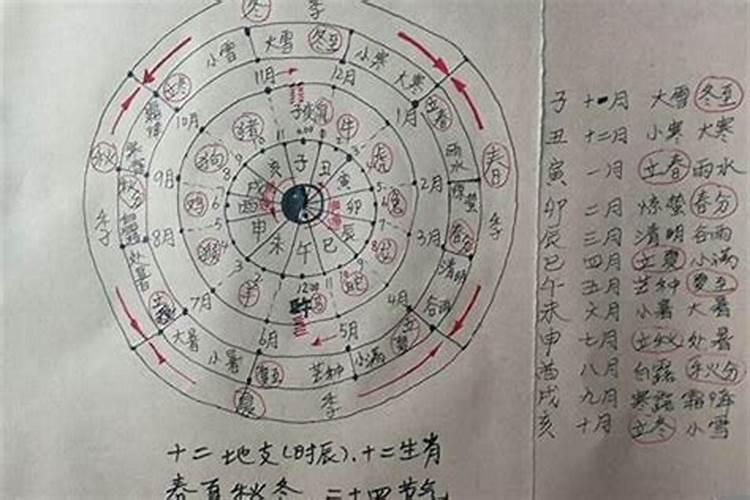 冬 季
小雪 大雪 冬至 小寒 大寒
立冬 立春
11月 12月
10月 1月
子 鼠 牛
猪 虎
亥 子 丑
狗 戌 寅
秋 9月 2月 雨水 春
秋分 鸡 酉 卯 兔 惊蛰
季 8月 申 辰 3月 春分 季
处暑 猴 未 午 巳 龙 清明
立秋 7月 羊 12:00 马 蛇 4月 谷雨
大暑 小暑 6月 5月 立夏
夏至 芒种 小满
夏 季
子 十一月 大雪 冬至
丑 十二月 小寒 大寒
寅 一月 立春 雨水
卯 二月 惊蛰 春分
辰 三月 清明 谷雨
巳 四月 立夏 小满
午 五月 芒种 夏至
未 六月 小暑 大暑
申 七月 立秋 处暑
酉 八月 白露 秋分
戌 九月 寒露 霜降
亥 十月 立冬 小雪
十二地支(时辰)、十二生肖
春夏秋冬 二十四节气